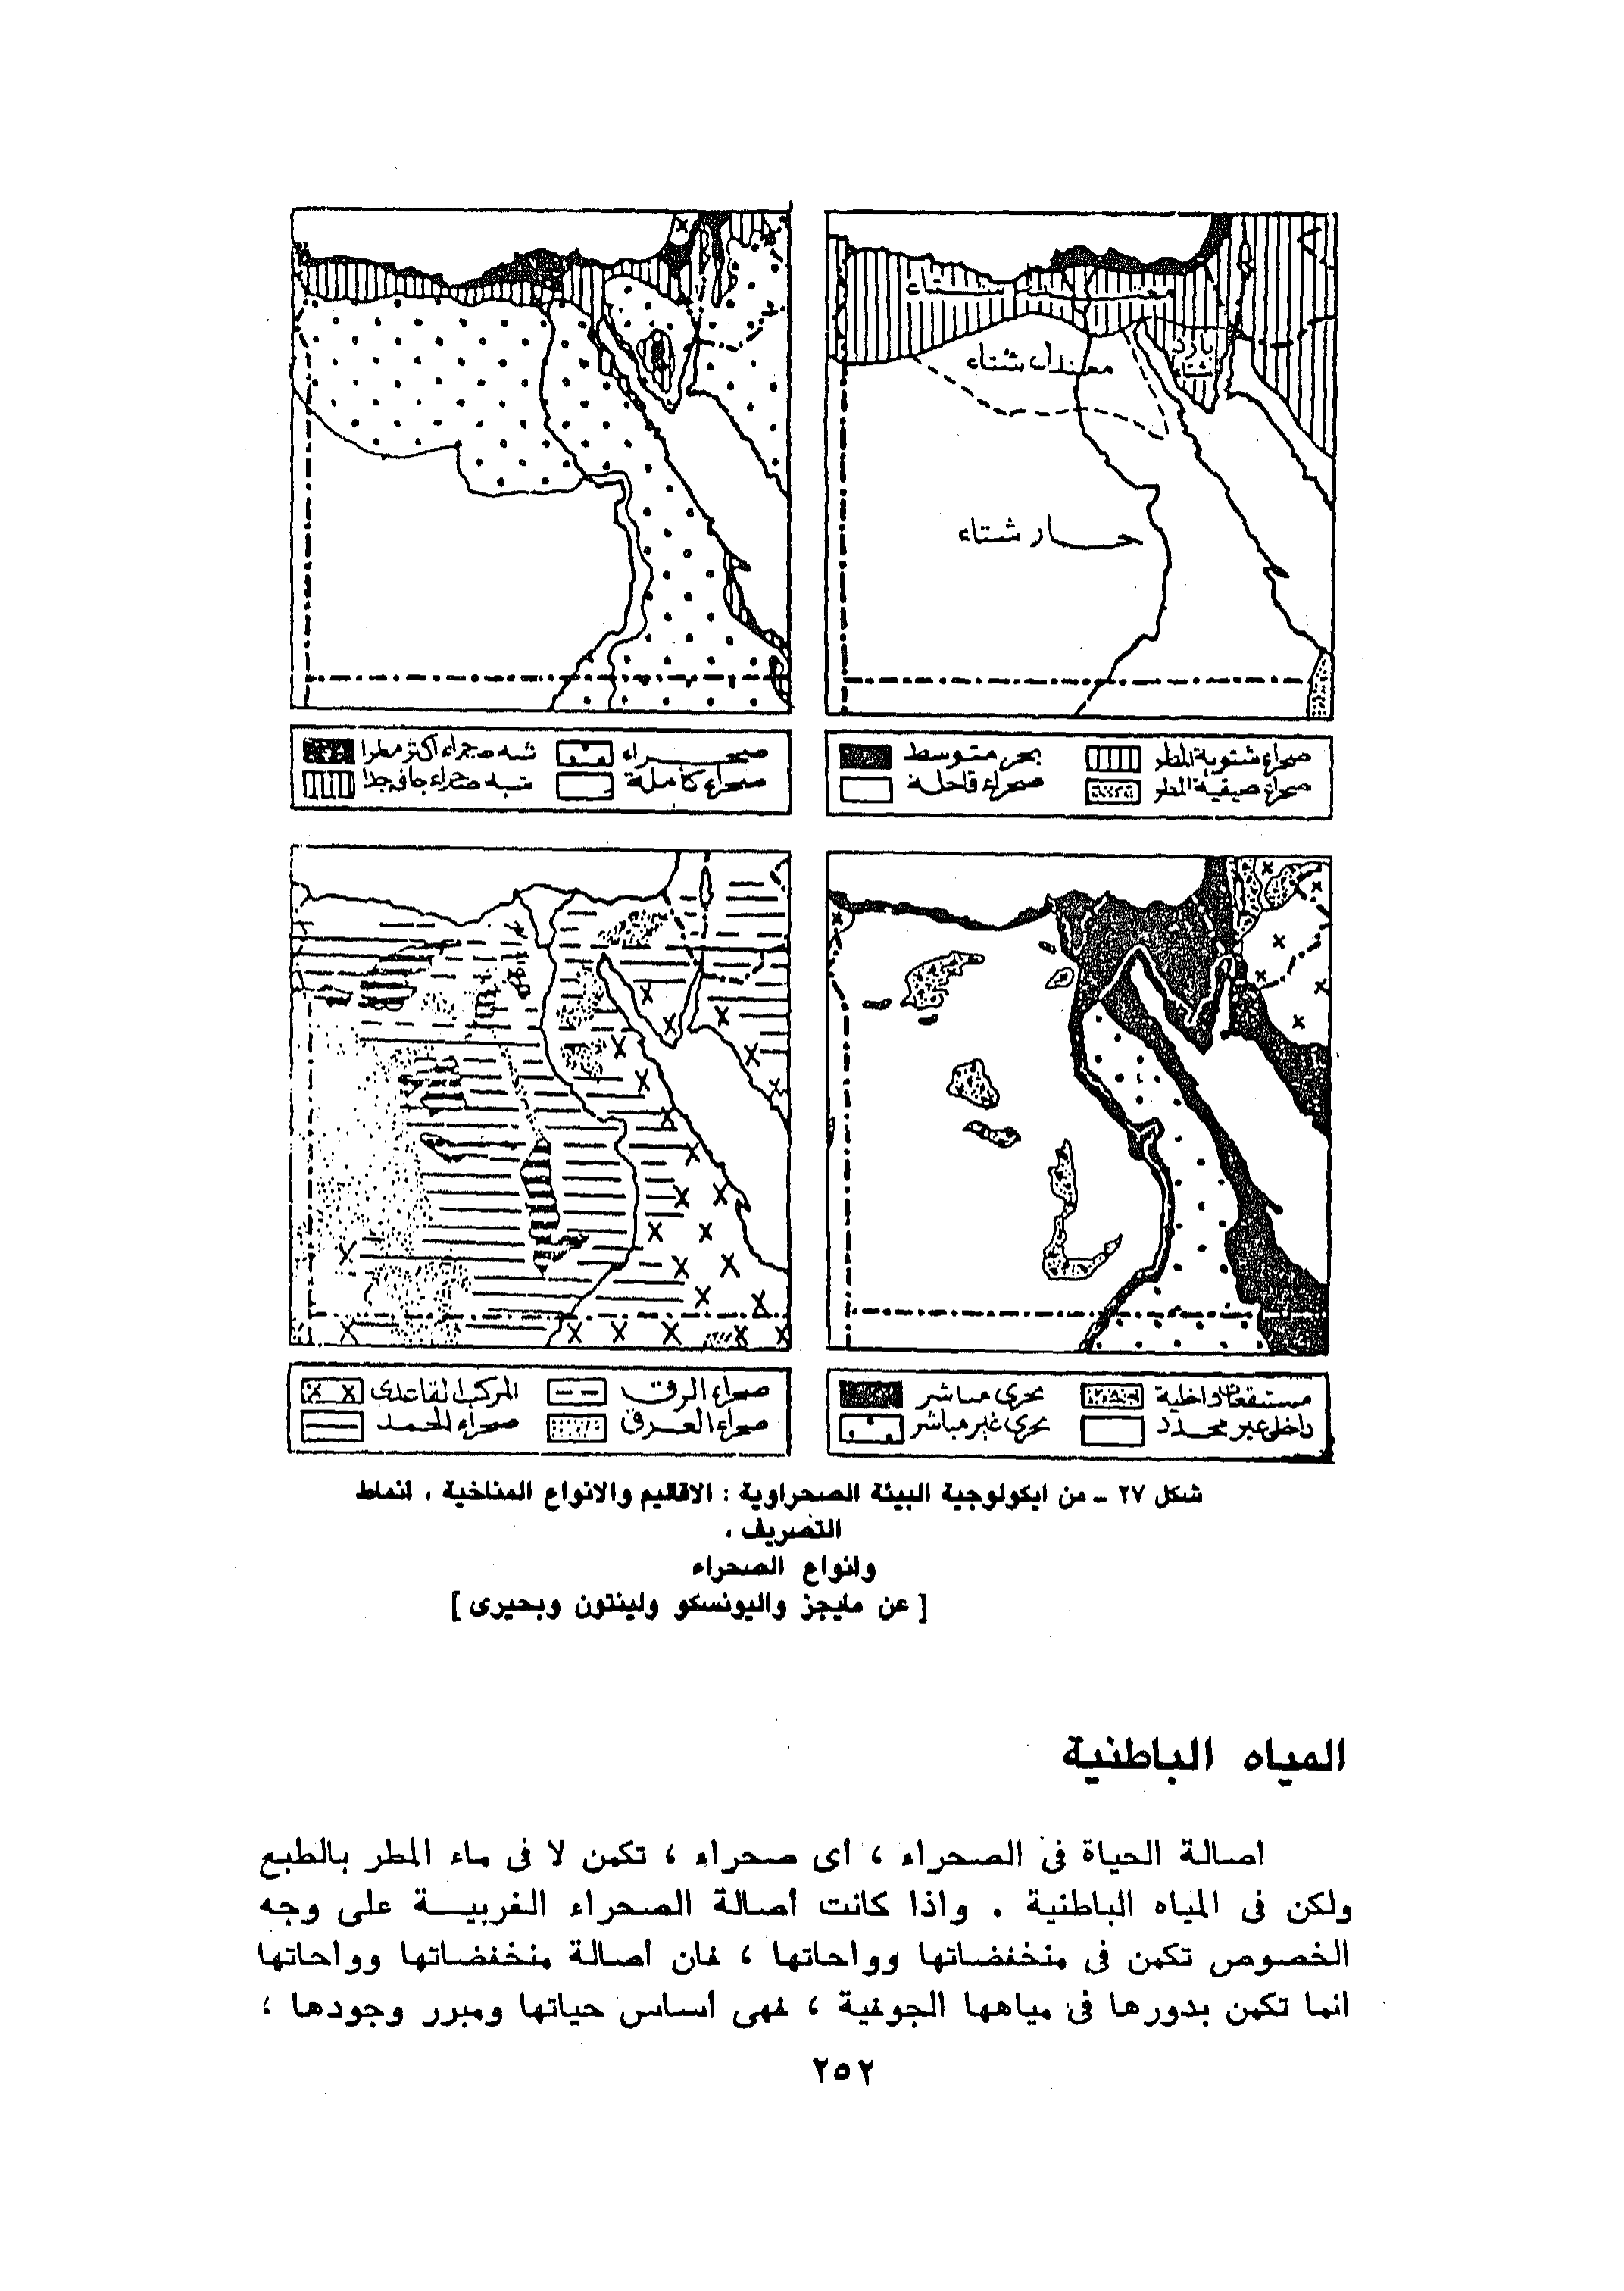 معتدل شتاء
بارد
شتاء
معتدل شتاء
حار شتاء
صحراء شتوية المطر
بحر متوسط
صحراء صيفية المطر
صحراء قاحلة
صحراء
شبه صحراء أكثر مطرا
صحراء كاملة
شبه صحراء جافة جدا
مستنقعات داخلية
بحرى مباشر
داخلى غير محدد
بحرى غير مباشر
صحراء الرق
المركب القاعدى
صحراء العرق
صحراء الحمد
شكل ٢٧ ـ من ايكولوجية البيئة الصحراوية : الاقاليم والانواع المناخية ، انماط
التصريف ،
وانواع الصحراء
[ عن مايجز واليونسكو ولينتون وبحيرى ]
المياه الباطنية
اصالة الحياة فى الصحراء ، أى صحراء ، تكمن لا فى ماء المطر بالطبع
ولكن فى المياه الباطنية . واذا كانت أصالة الصحراء الغربيـــة على وجه
الخصوص تكمن فى منخفضاتها وواحاتها ، فان أصالة منخفضاتها وواحاتها
انما تكمن بدورها فى مياهها الجوفية ، فهى أساس حياتها ومبرر وجودها ؛
٢٥٢